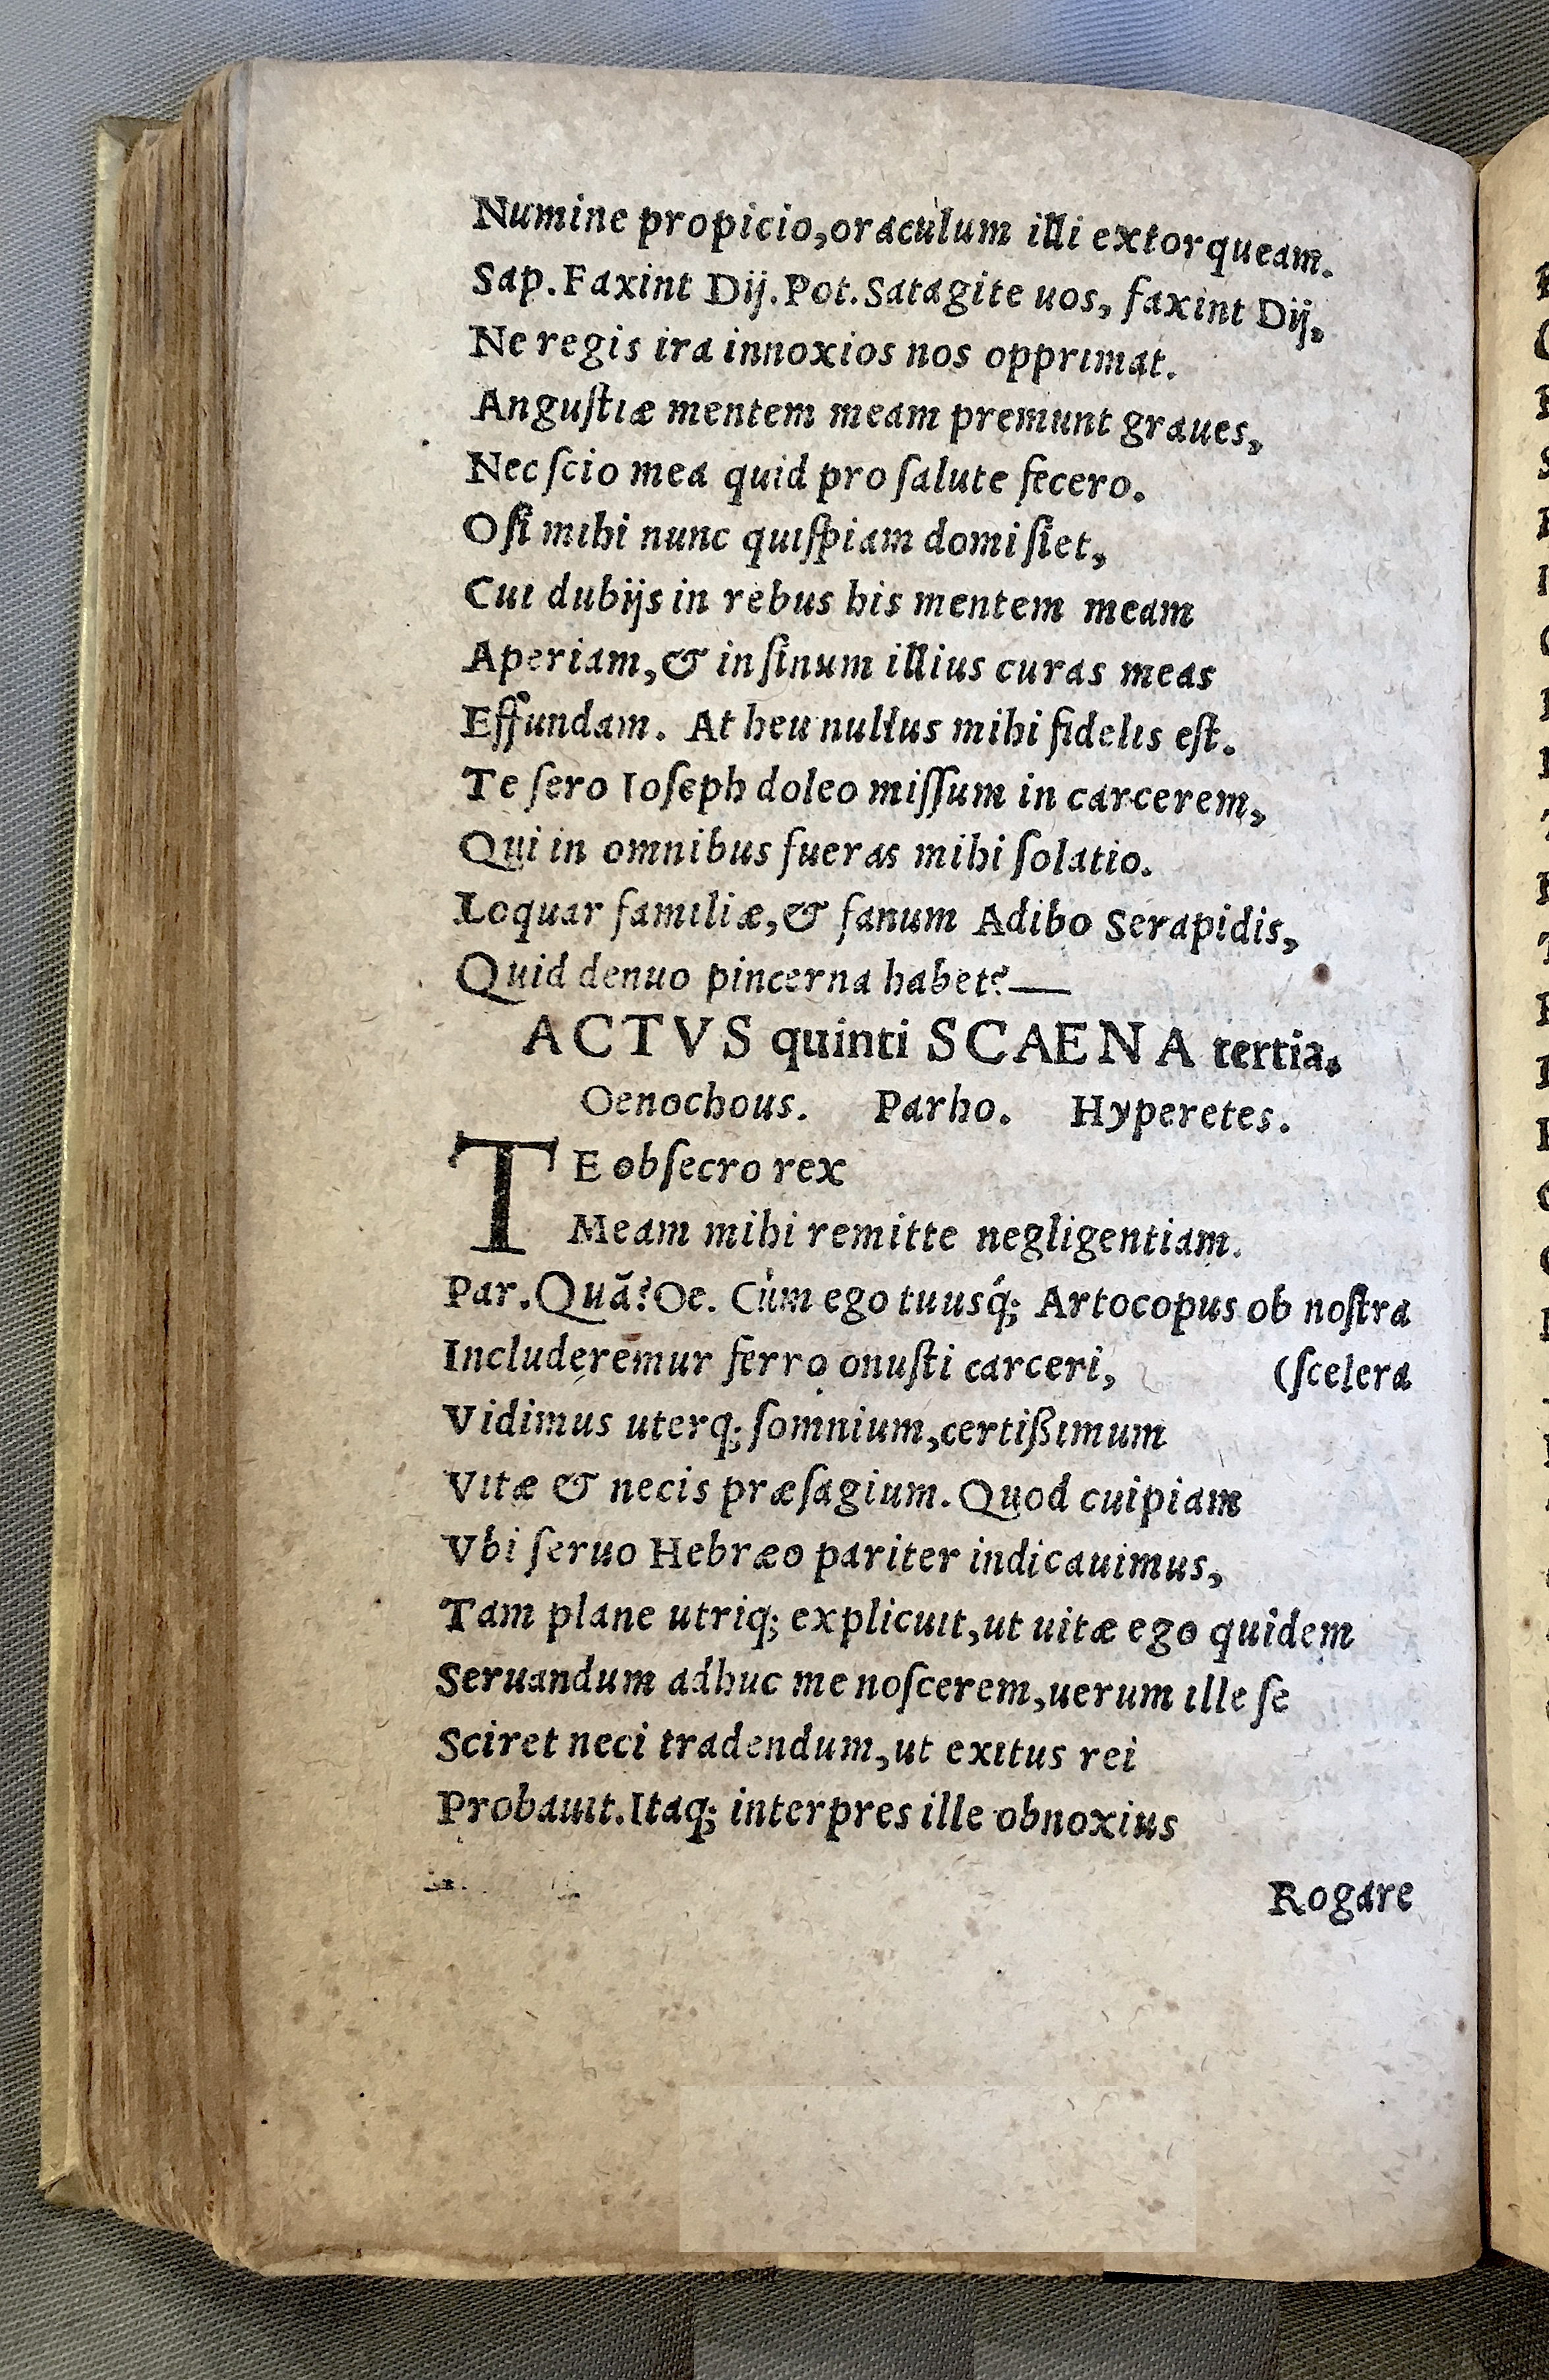 Numine propicio,oraculum illi extorqueam.
Sap.Faxint Dij.Pot.Satagite uos, faxint Dij,
Ne regis ira innoxios nos opprimat.
Anguſtiæ mentem meam premunt graues,
Nec ſcio mea quid pro ſalute fecero.
O ſi mihi nunc quiſpiam domi ſiet,
Cui dubijs in rebus his mentem meam
Aperiam,& in ſinum illius curas meas
Effundam. At heu nullus mihi fidelis eſt.
Te ſero Ioſeph doleo miſſum in carcerem,
Qui in omnibus fueras mihi ſolatio.
Loquar familiæ,& fanum Adibo Serapidis,
Quid denuo pincerna habet?—
ACTVS quinti SCAENA tertia.
Oenochous. Parho. Hyperetes.
TE obſecro rex
Meam mihi remitte negligentiam.
Par.Quã?Oe. Cùm ego tuusq́; Artocopus ob noſtra
Includeremur ferro onuſti carceri, (ſcelera
Vidimus uterq; ſomnium,certißimum
Vitæ & necis præſagium.Quod cuipiam
Vbi ſeruo Hebræo pariter indicauimus,
Tam plane utriq; explicuit,ut uitæ ego quidem
Seruandum adhuc me noſcerem,uerum ille ſe
Sciret neci tradendum,ut exitus rei
Probauit.Itaq; interpres ille obnoxius
Rogare